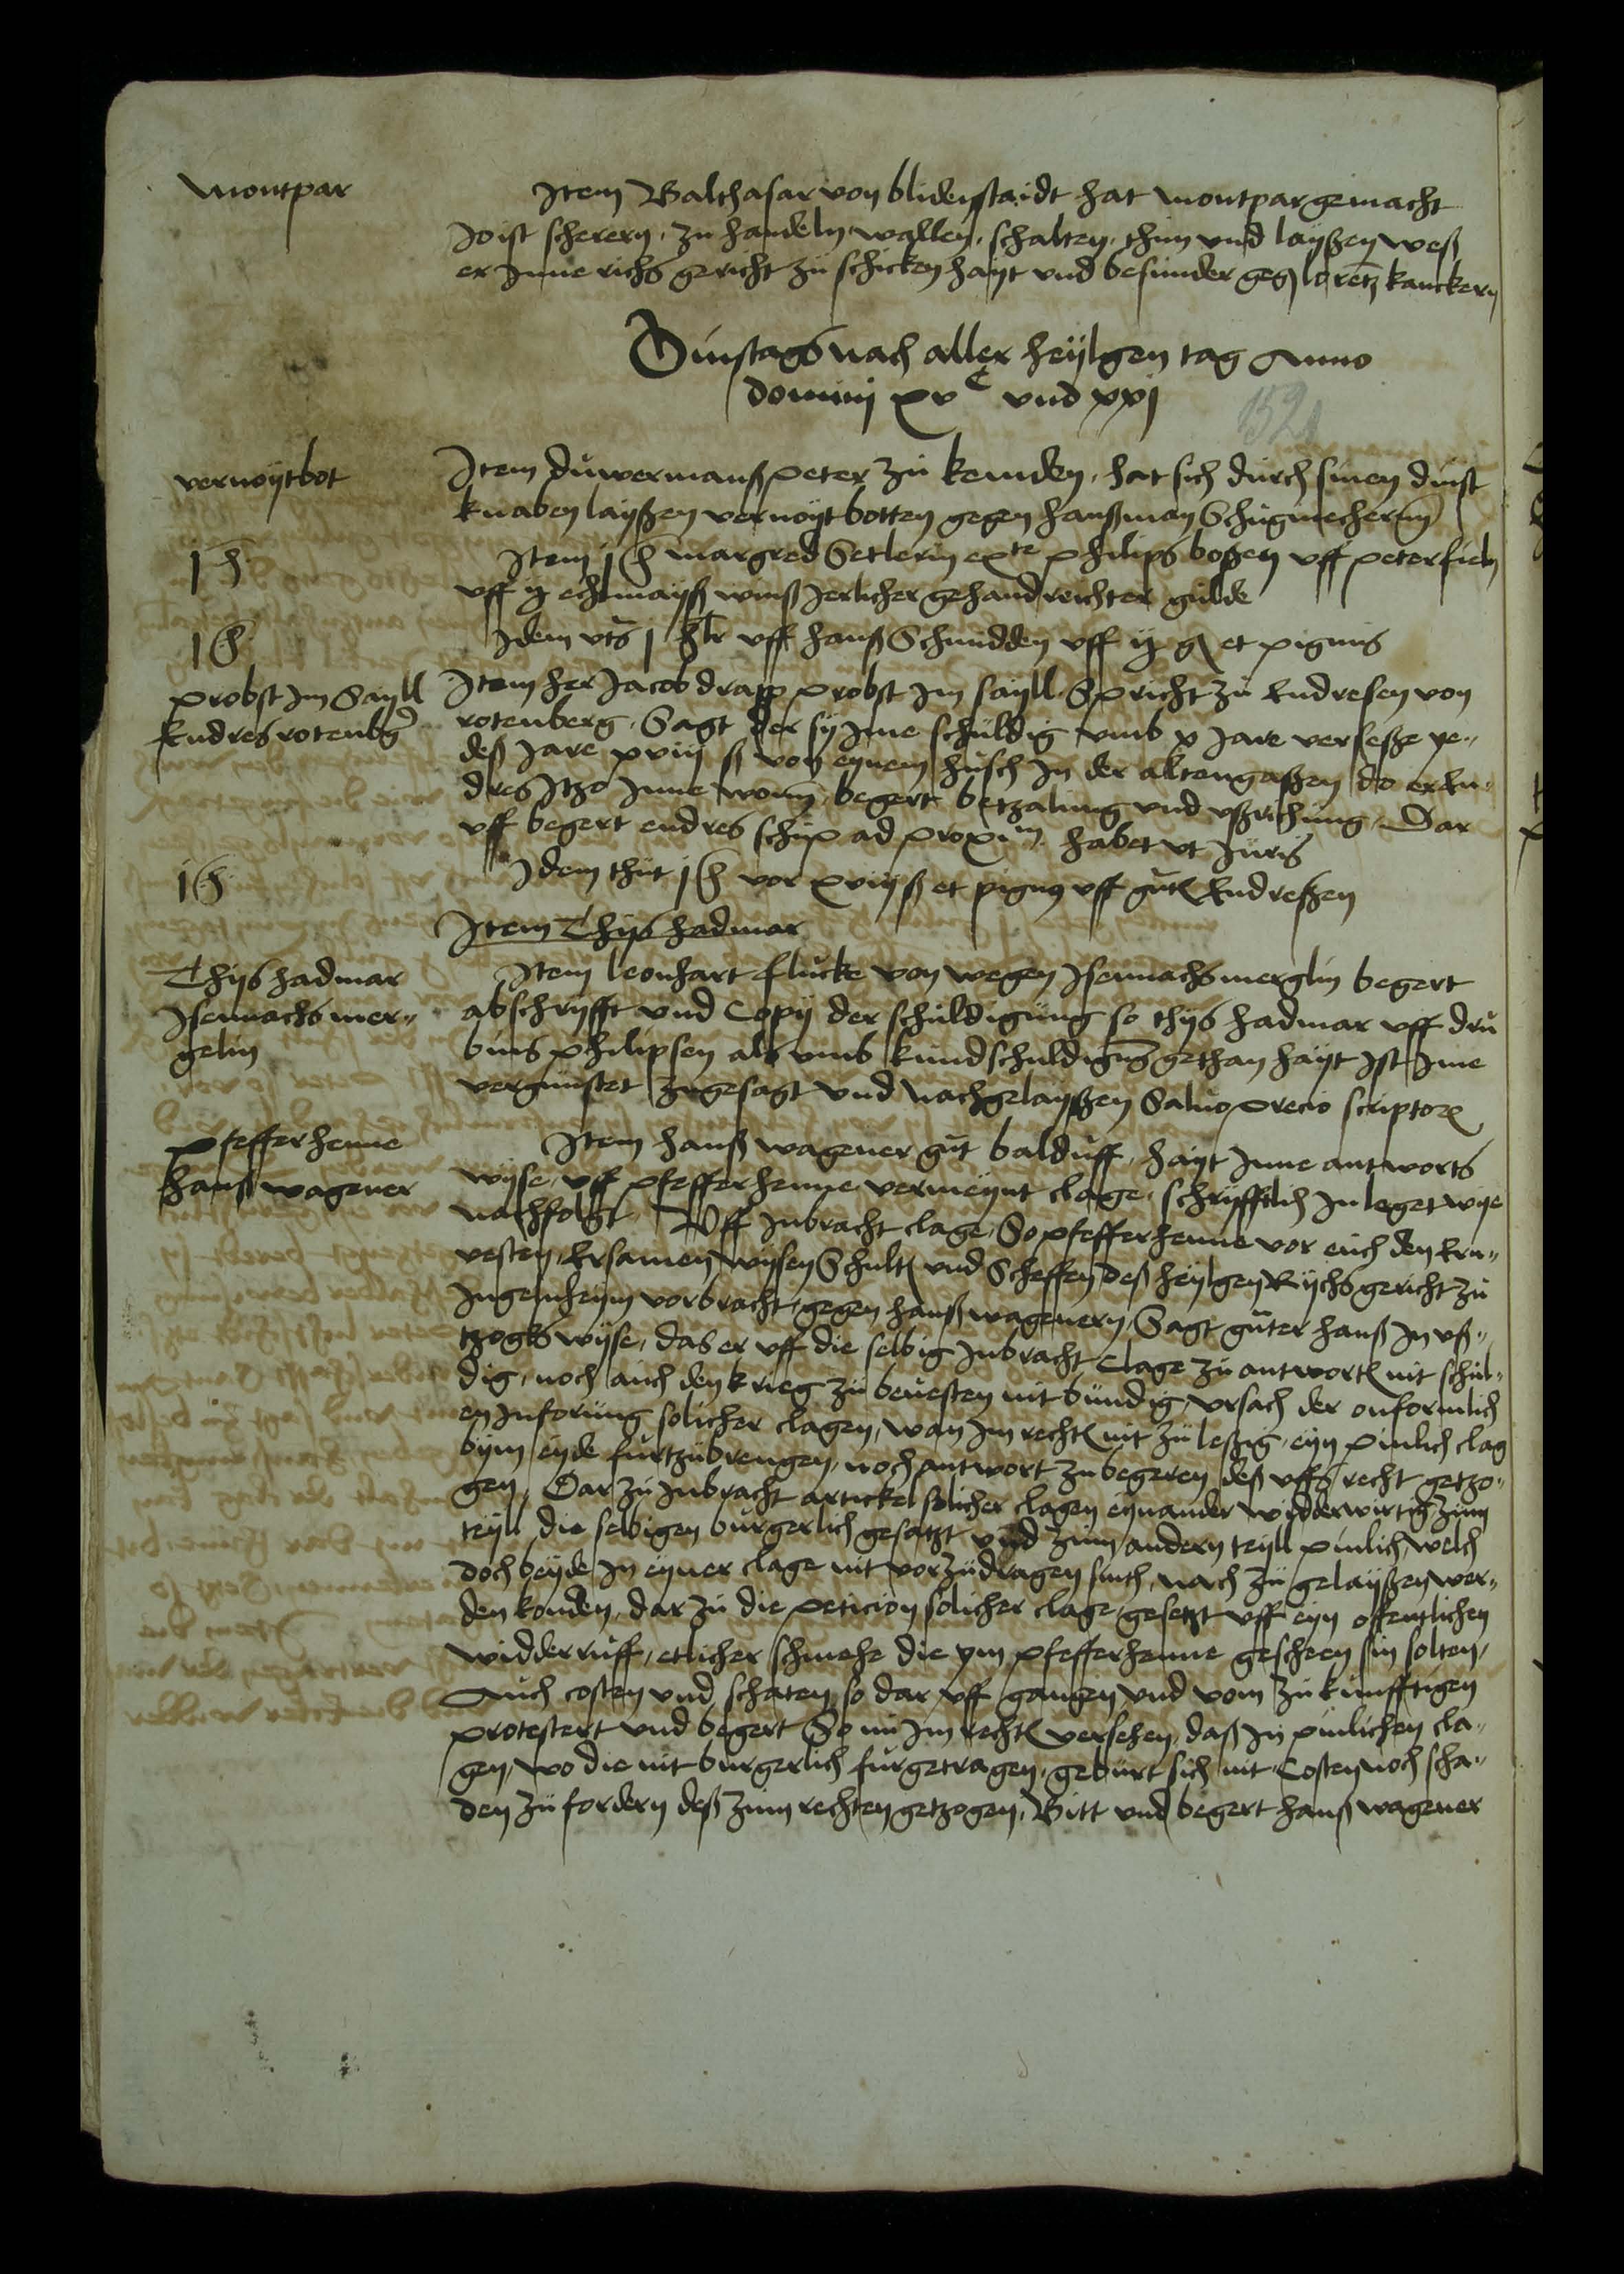 montpar
Item Balthasar von blidenstaidt hat montpar gemacht
Joist scherern, zu handeln wallen, schalten, thun vnd layßen weß
er Jnne richs gericht zu schicken hayt vnd besunder geg lorentz kanckern
Dinstags nach aller heylgen tag Anno
domini xvc vnd xxj
1521
vernoytbot
Item duwermanß peter zu kemden, hat sich durch sinen dinst
knaben layßen vernoytbotten gegen hanßman Schugmechern
1 h
Item 1 h margred Setlerin ex te philips boßen vff peter fieln
vff ij echtmayß winß Jerlicher gehandreichter gulde
1 h
Idem vts 1 hlr vff hanß Schmidden vff ij g et pignus
probst Im Sayll
Endres rotenbg
Item her Jacob drapp probst Im sayll Spricht zu Endresen von
rotenberg, Sagt der sy Jme schuldig vmb x Jare verseße ye„
deß Jare xviij ß von eynem husch In der altengaßen do er En„
dres Jtzo Jnne wonn, begert betzalung vnd vßrichung, Dar
vff begert endres schup ad proxim habet vt Juris
1 h
Idem thut 1 h vor xviij ß et pigng vff gut Endreßen
Item Thijs hadmar
Thijs hadmar
Isennachs mer„
gelin
Item leonhart flucke von wegen Isennachs merglin begert
abschryfft vnd Copy der schuldigung so thijs hadmar vff dru
bins philipsen als vmb kundschuldigung gethan hayt Ist Jme
vergunstet zugesagt vnd nachgelayßen Saluo precio scriptor
pfefferhenne
hanß wagener
Item hanß wagener gut balduff, hayt Jnne antworts
wyse, vff pfefferhenne vermeynt clage, schryfftlich Inleget wye
nachfolgt Vff Inbracht clage, So pfefferhenne vor euch den Ern„
vesten, Ersamen, wysen Schult vnd Scheffen deß heylgen Rychs gericht zu
Ingelnheym vorbracht, gegen hanß wagenern, Sagt guter hanß In vß„
tzogks wyse, das er vff die selbig Inbracht Clage zu antwort nit schul„
dig, noch auch den krieg zu beuesten nit bundig, vrsach der onformlich
en Inforung solicher clagen, wan Im recht nit zuleßig, eyn pinlich clag
bym eyde furtzubrengen, noch antwort zu begeren, deß vffs recht getzo„
gen, Dar zu Inbracht artickel solicher clagen eynander widderwirtig zum
teyll die selbigen burgerlich gesatzt vnd zum andern teyll pinlich, welch
doch beyde In eyner clage nit vorzudragen sinth, nach zu gelayßen wer„
den konden, dar zu die peticion solicher clage, gesetzt vff eyn offentlichen
widderruff, etlicher schmehe die ym pfefferhenne gescheen sin solten,
Auch costen vnd schaten so dar vff gangen vnd vom zukunfftigen
protestert vnd begert So nu Im recht versehen, daß In pinlichen cla„
gen, wo die nit burgerlich furgetragen, geburt sich nit Costen noch scha„
den zu fordern deß zum rechten getzogen, Bitt vnd begert hanß wagener